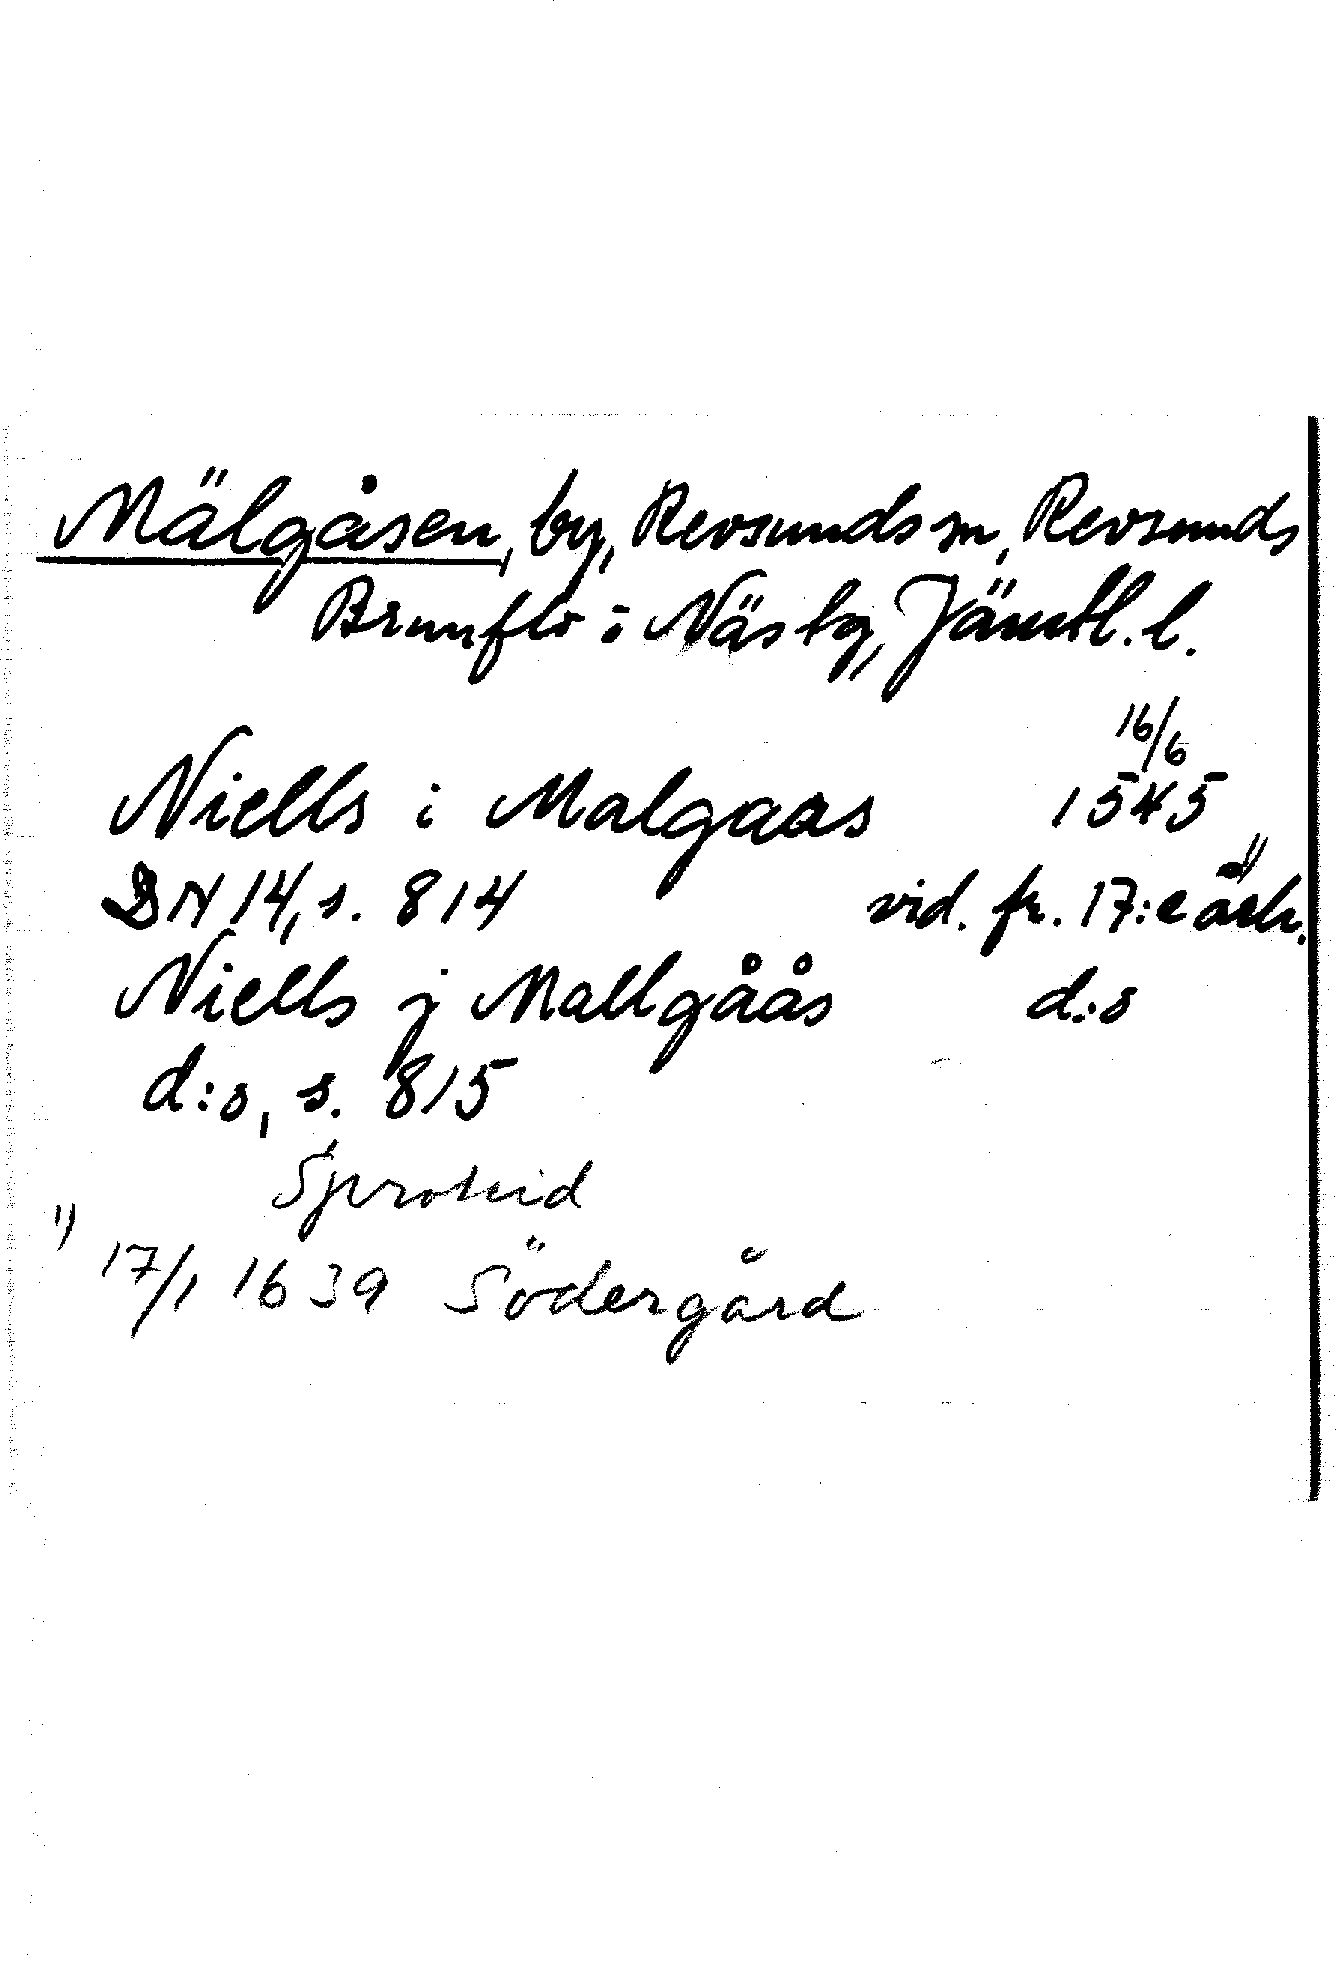 Mälgåsen, by, Revsunds sn, Revsunds
Brunflo o Näs tg, Jämtl. l.
16/6
Niells i Malgaas 1545
DN 14, s. 814 vid. fr. 17:e årh. 1)
Niells j Mallgåås d:o
d:o, s. 815
1) 17/1 1639 Södergård